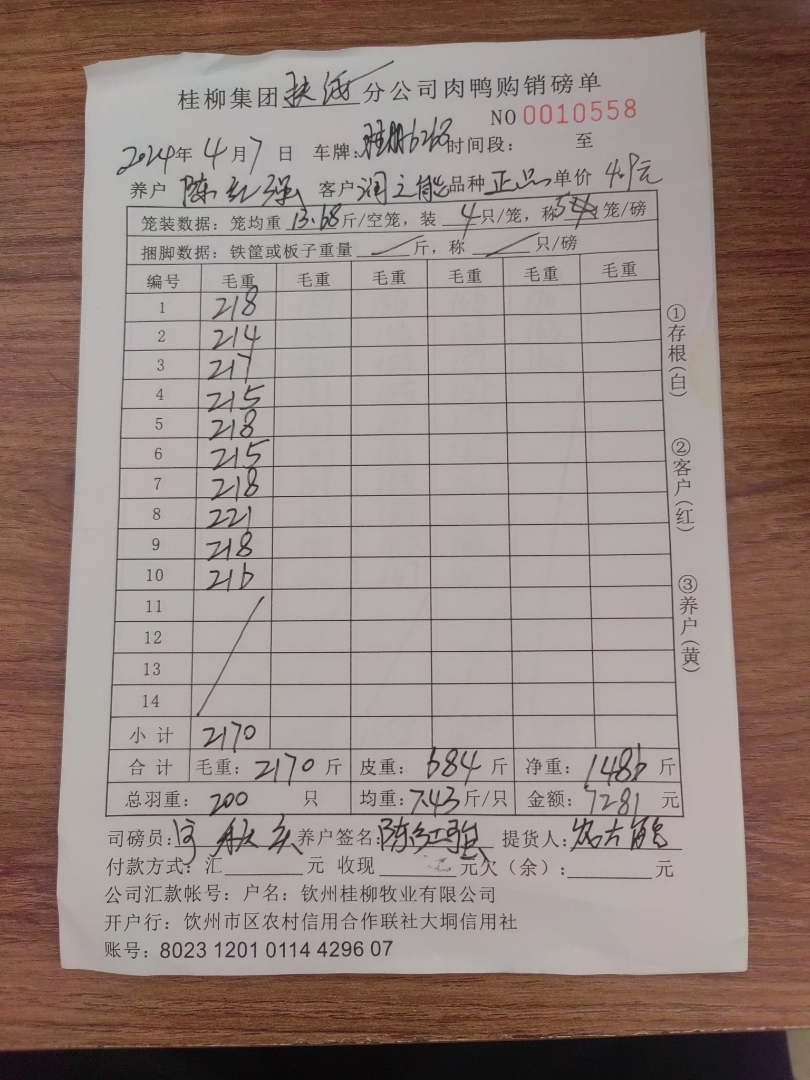 桂柳集团扶绥分公司肉鸭购销磅单
NO 0010558
2024年4月7日 车牌:桂 6268 时间段: 至
养户 陈红强 客户 润之能 品种 正品 单价 4.9元
笼装数据:笼均重 13.68 斤/空笼,装 4 只/笼,称 笼/磅
捆脚数据:铁筐或板子重量 / 斤,称 / 只/磅
编号 毛重 毛重 毛重 毛重 毛重 毛重
1 218
2 214
3 217
4 215
5 218
6 215
7 218
8 221
9 218
10 216
11
12
13
14
小计 2170
合计 毛重:2170斤 皮重:684斤 净重:1486斤
总羽重:200 只 均重:7.43斤/只 金额:7281元
司磅员: 养户签名:陈红强 提货人:
付款方式:汇______元 收现 元欠(余):______元
公司汇款帐号:户名:钦州桂柳牧业有限公司
开户行:钦州市区农村信用合作联社大垌信用社
账号:8023 1201 0114 4296 07
①存根(白)
②客户(红)
③养户(黄)